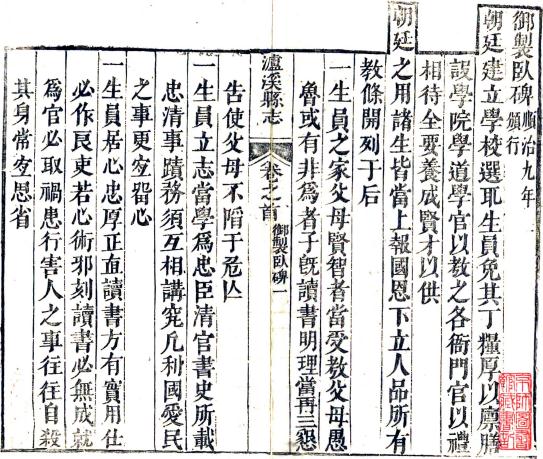 御製臥碑順治九年頒行
朝廷建立學校選取生員免其丁糧厚以廩膳
設學院學道學官以教之各衙門官以禮
相待全要養成賢才以供
朝廷之用諸生皆當上報國恩下立人品所有
教條開列于后
一生員之家父母賢智者當受教父母愚
魯或有非爲者子既讀書明理當再三懇
瀘溪縣志 卷之首 御製臥碑 一
告使父母不陷于危亾
一生員立志當學爲忠臣清官書史所載
忠清事蹟務須互相講究凡利國愛民
之事更宐畱心
一生員居心忠厚正直讀書方有實用仕
必作良吏若心術邪刻讀書必無成就
爲官必取禍患行害人之事往往自殺
其身常宐思省